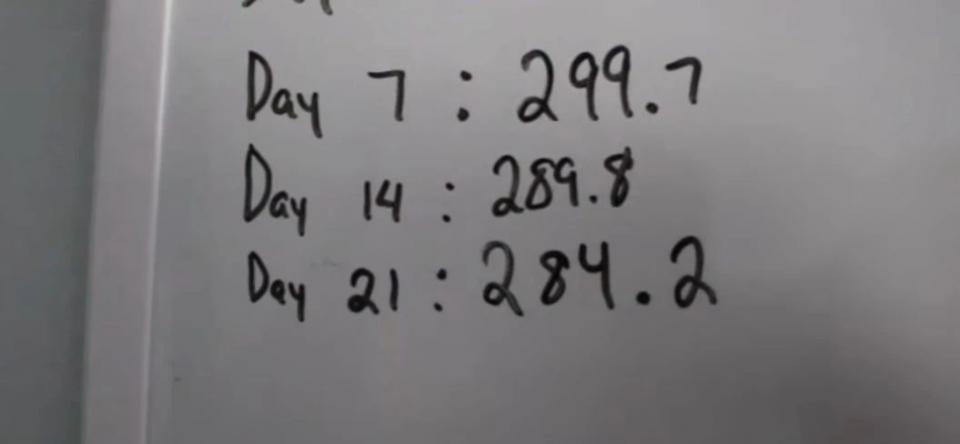 Day 7 : 299.7
Day 14 : 289.8
Day 21 : 284.2